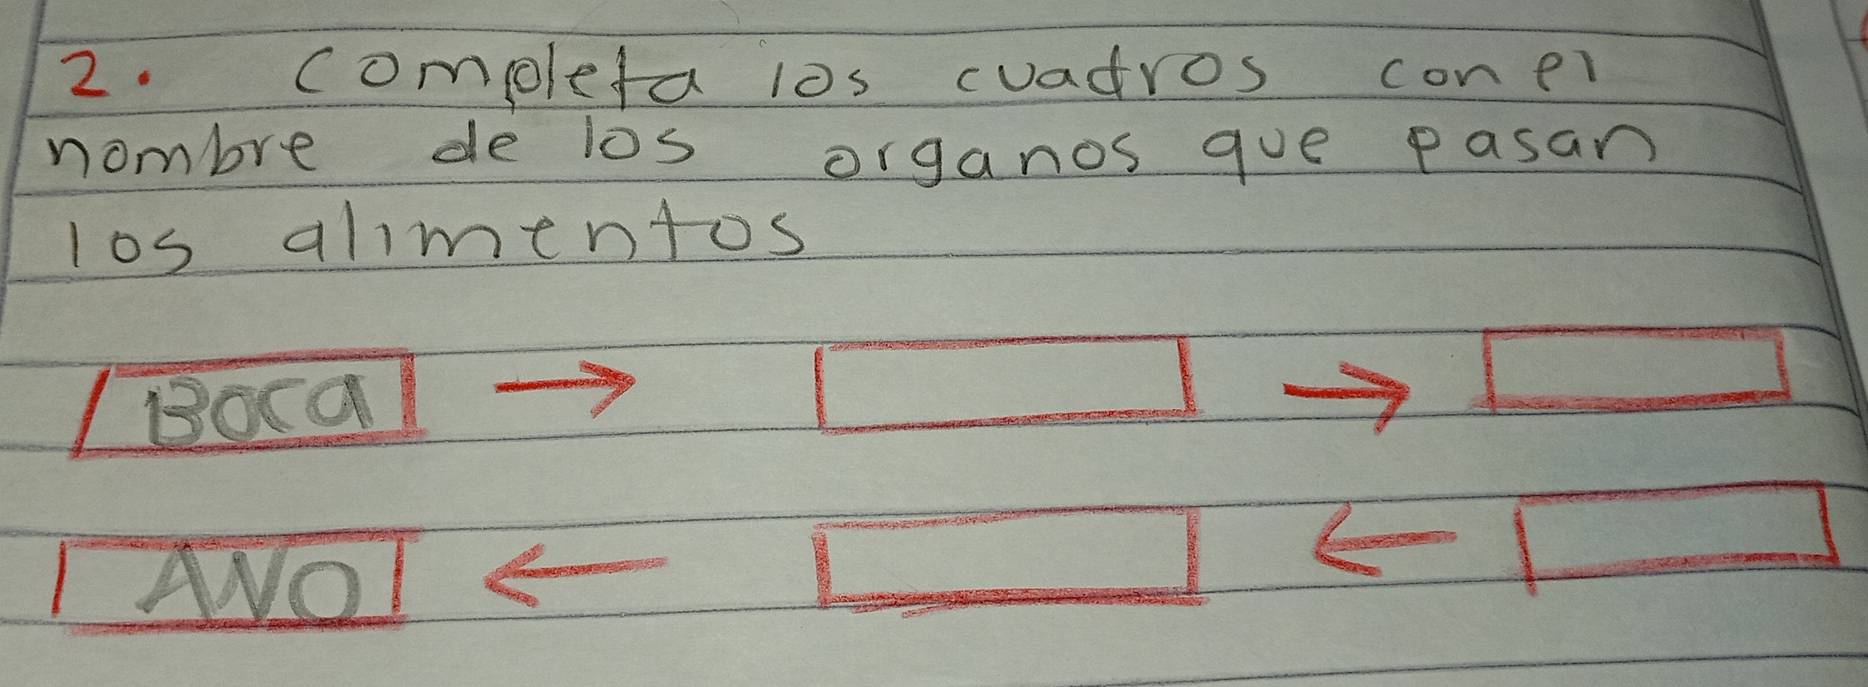 2. completa los cuadros con el
nombre de los organos que pasan
los alimentos
Boca
ANO